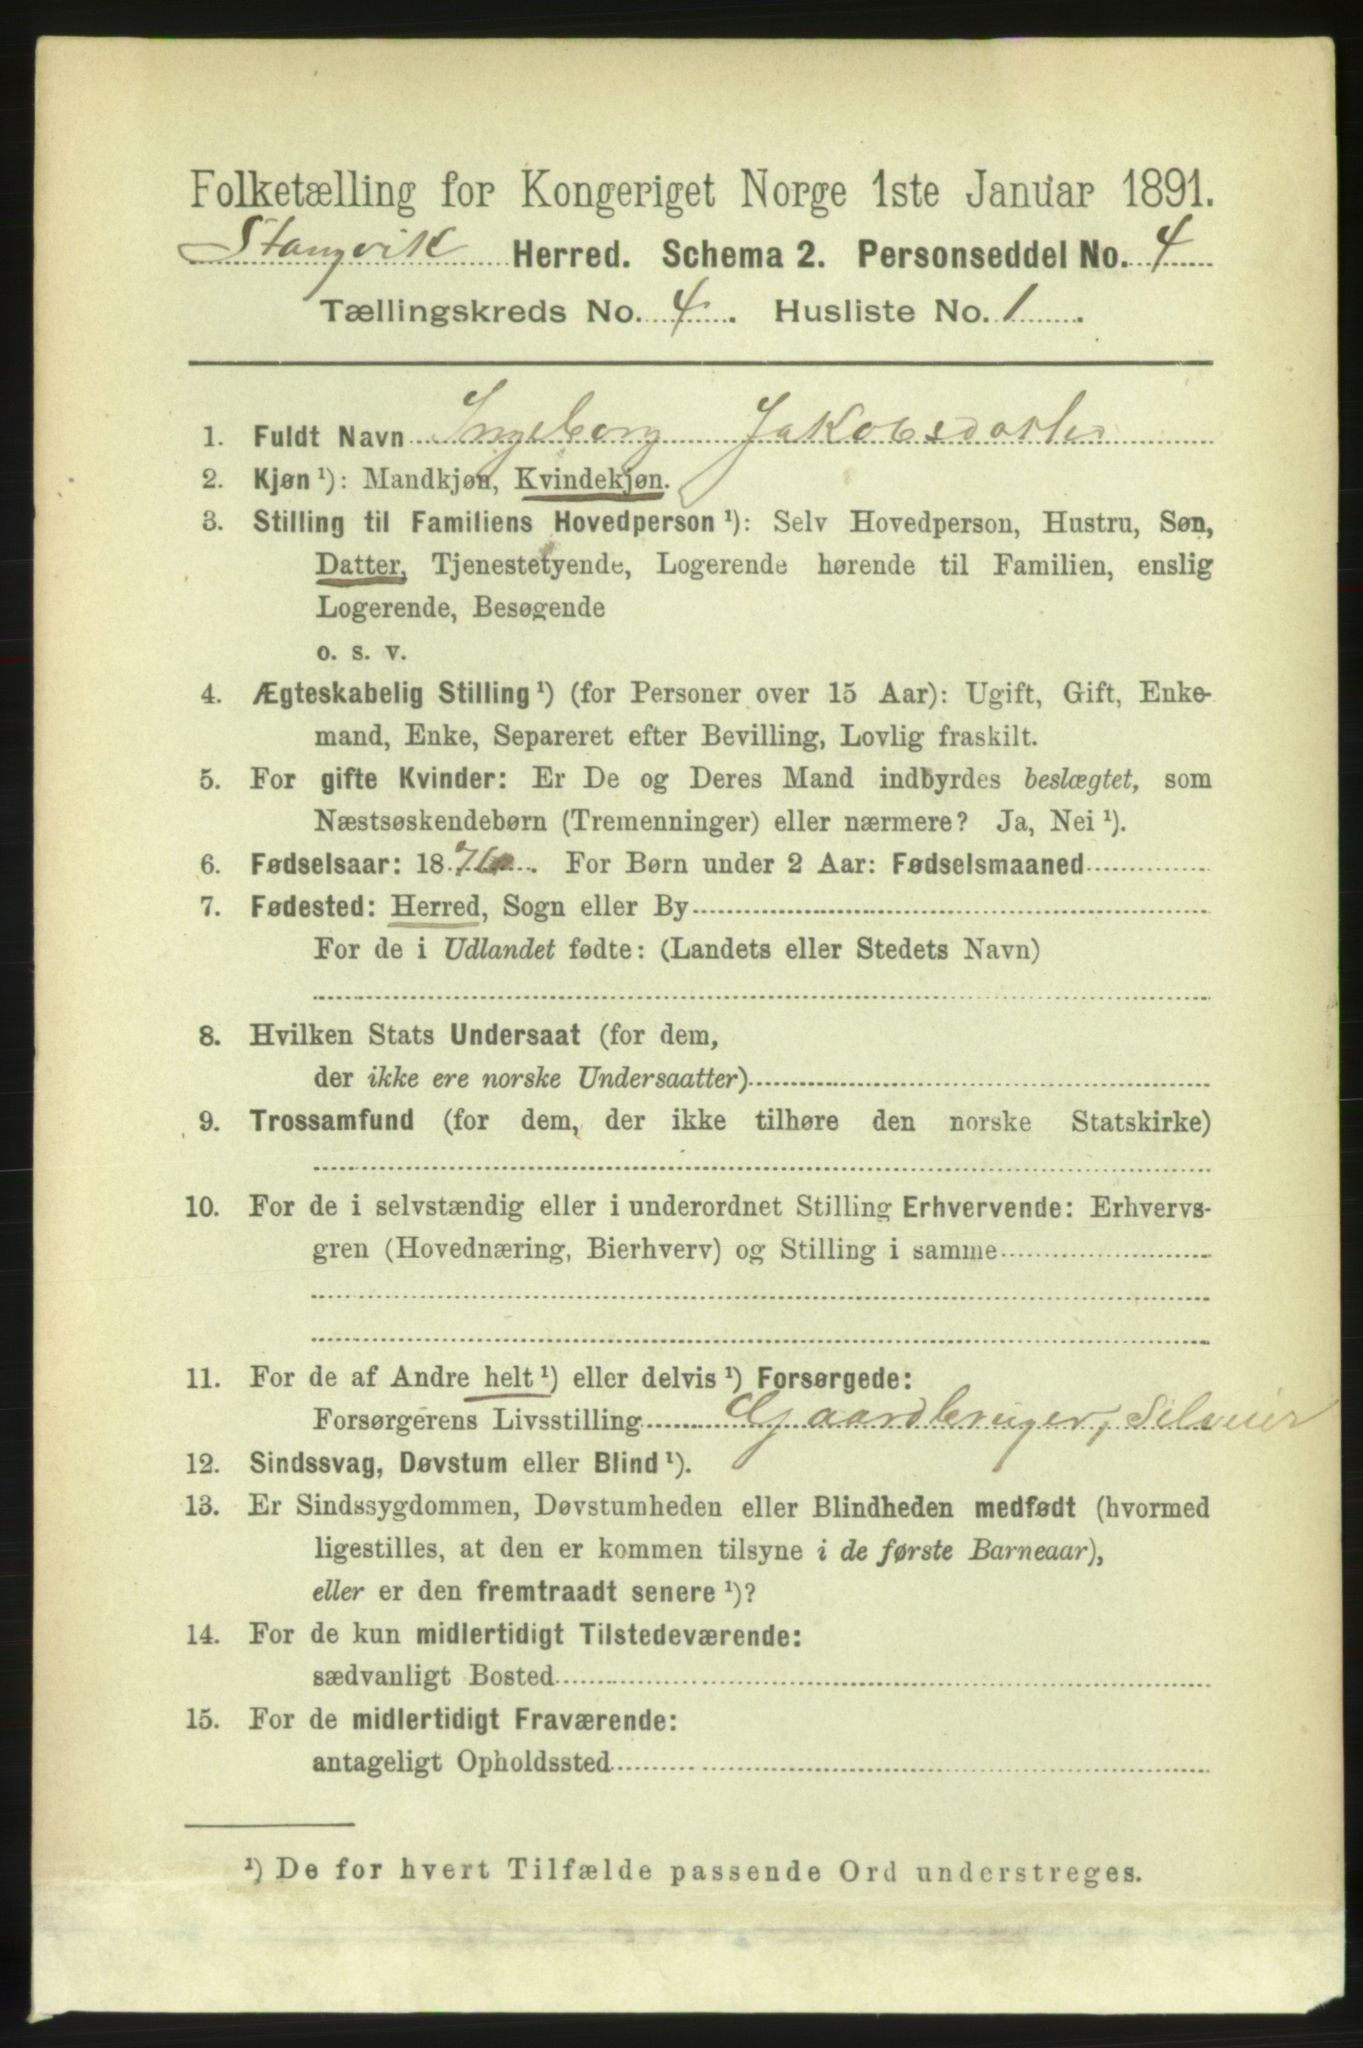 Folketælling for Kongeriget Norge 1ste Januar 1891.
Stangvik Herred. Schema 2. Personseddel No. 4
Tællingskreds No. 4. Husliste No. 1.
1. Fuldt Navn Ingeborg Jakobsdatter
2. Kjøn ¹): Mandkjøn, Kvindekjøn.
3. Stilling til Familiens Hovedperson ¹): Selv Hovedperson, Hustru, Søn,
Datter, Tjenestetyende, Logerende hørende til Familien, enslig
Logerende, Besøgende
o. s. v.
4. Ægteskabelig Stilling ¹) (for Personer over 15 Aar): Ugift, Gift, Enke-
mand, Enke, Separeret efter Bevilling, Lovlig fraskilt.
5. For gifte Kvinder: Er De og Deres Mand indbyrdes beslægtet, som
Næstsøskendebørn (Tremenninger) eller nærmere? Ja, Nei ¹).
6. Fødselsaar: 1876. For Børn under 2 Aar: Fødselsmaaned
7. Fødested: Herred, Sogn eller By
For de i Udlandet fødte: (Landets eller Stedets Navn)
8. Hvilken Stats Undersaat (for dem,
der ikke ere norske Undersaatter)
9. Trossamfund (for dem, der ikke tilhøre den norske Statskirke)
10. For de i selvstændig eller i underordnet Stilling Erhvervende: Erhvervs-
gren (Hovednæring, Bierhverv) og Stilling i samme
11. For de af Andre helt ¹) eller delvis ¹) Forsørgede:
Forsørgerens Livsstilling Gaardbruger, Selveier
12. Sindssvag, Døvstum eller Blind ¹).
13. Er Sindssygdommen, Døvstumheden eller Blindheden medfødt (hvormed
ligestilles, at den er kommen tilsyne i de første Barneaar),
eller er den fremtraadt senere ¹)?
14. For de kun midlertidigt Tilstedeværende:
sædvanligt Bosted
15. For de midlertidigt Fraværende:
antageligt Opholdssted
¹) De for hvert Tilfælde passende Ord understreges.